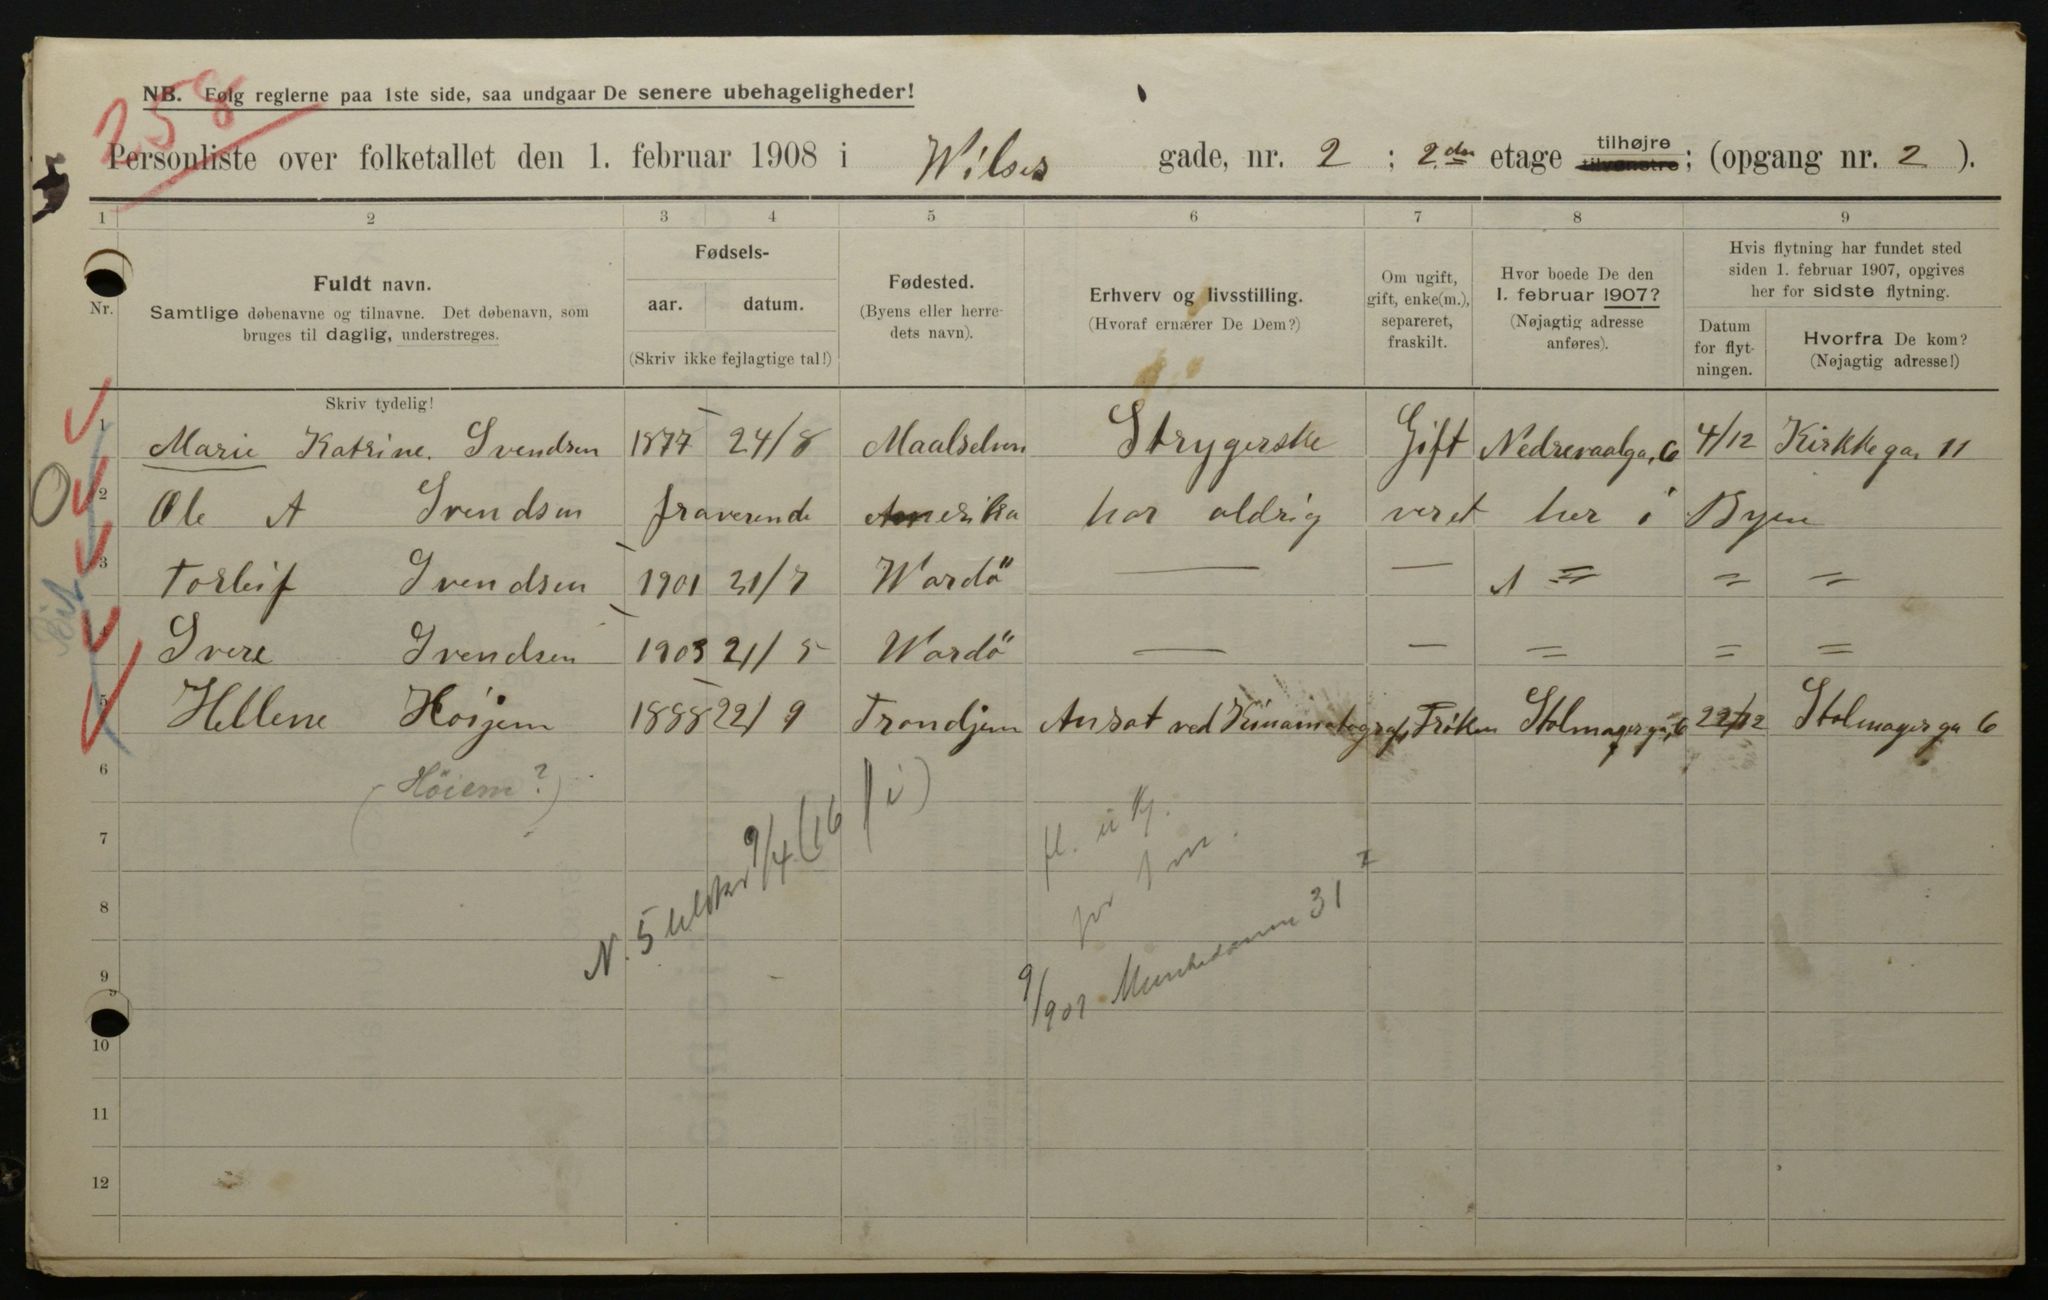 258
NB. Følg reglerne paa 1ste side, saa undgaar De senere ubehageligheder!
Personliste over folketallet den 1. februar 1908 i Wilses gade, nr. 2 ; 2.den etage tilhøjre tilvenstre; (opgang nr. 2 ).
1 2 3 4 5 6 7 8 9
Nr.
Fuldt navn.
Samtlige døbenavne og tilnavne. Det døbenavn, som
bruges til daglig, understreges.
Fødsels-
aar. datum.
(Skriv ikke fejlagtige tal!)
Fødested.
(Byens eller herre-
dets navn).
Erhverv og livsstilling.
(Hvoraf ernærer De Dem?)
Om ugift,
gift, enke(m.),
separeret,
fraskilt.
Hvor boede De den
1. februar 1907?
(Nøjagtig adresse
anføres).
Hvis flytning har fundet sted
siden 1. februar 1907, opgives
her for sidste flytning.
Datum
for flyt-
ningen.
Hvorfra De kom?
(Nøjagtig adresse!)
Skriv tydelig!
1 Marie Katrine. Svendsen 1877 24/8 Maalselven Strygerske Gift Nedrevaalga, 6 4/12 Kirkkega, 11
2 Ole A Svendsen fraverende Amerika har aldrig veret her i Byen
3 Torleif Svendsen 1901 21/7 Wardö — — = = =
4 Svere Svendsen 1903 21/5 Wardö — — = = =
5 Hellene Hoijem 1888 22/9 Trondjem Ansat ved Kinamatograf, Frøken Stolmagerga, 6 22/12 Stolmagerga 6
6 (Höiem?)
7
8
9
10
11
12
N. 5 9/4 (16
9/901 Munkedamm 31